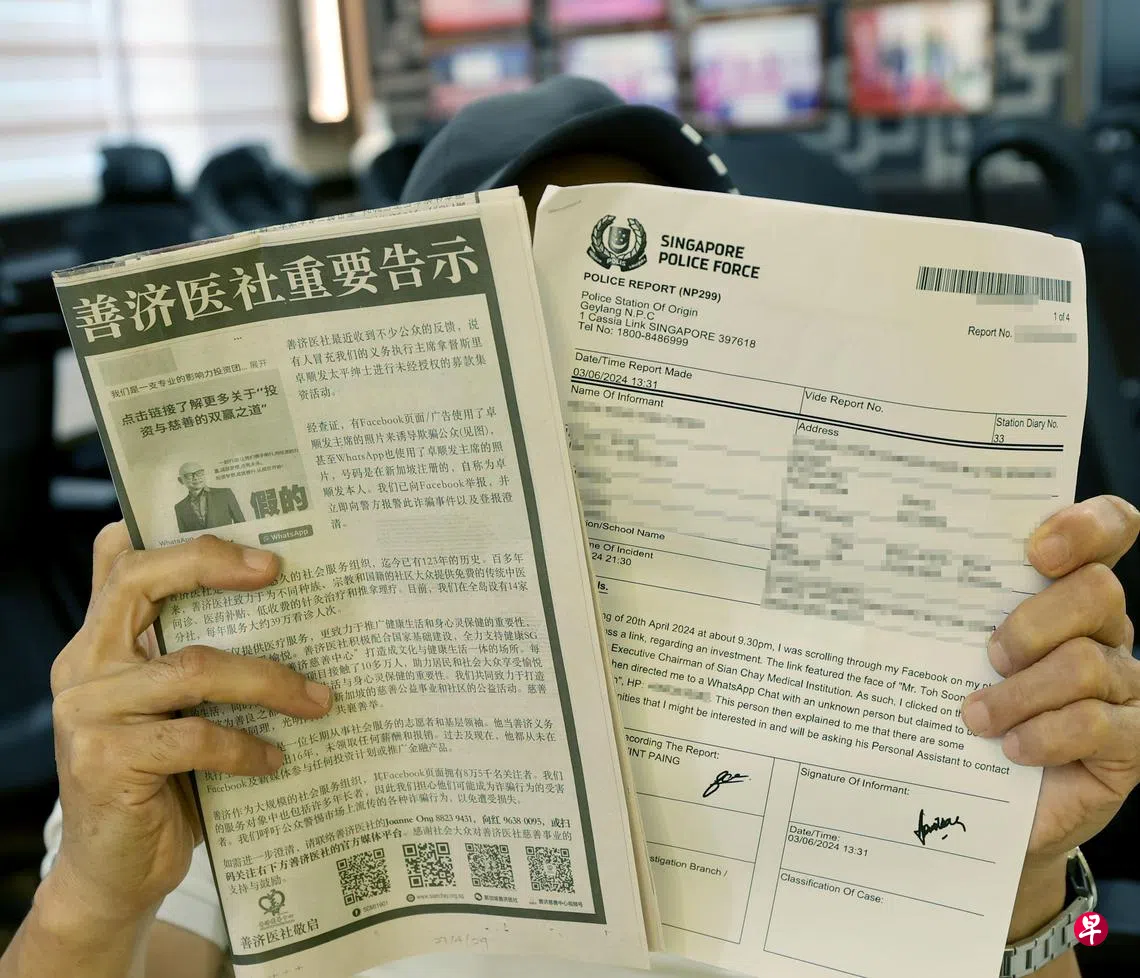 善济医社重要告示
我们是一支专业的影响力投资团... 展开
点击链接了解更多关于“投
资与慈善的双赢之道”
假的
WhatsApp
WhatsApp
善济医社最近收到不少公众的反馈，说
有人冒充我们的义务执行主席拿督斯里
卓顺发太平绅士进行未经授权的募款集
资活动。
经查证，有Facebook页面/广告使用了卓
顺发主席的照片来诱导欺骗公众(见图)，
甚至WhatsApp也使用了卓顺发主席的照
片，号码是在新加坡注册的，自称为卓
顺发本人。我们已向Facebook举报，并
立即向警方报警此诈骗事件以及登报澄
清。
久的社会服务组织，迄今已有123年的历史。百多年
来，善济医社致力于为不同种族、宗教和国籍的社区大众提供免费的传统中医
问诊、医药补贴、低收费的针灸疗治和推拿理疗。目前，我们在全岛设有14家
分社，每年服务大约39万看诊人次。
仅提供医疗服务，更致力于推广健康生活和身心灵保健的重要性，
愉悦。善济医社积极配合国家基础建设，全力支持健康SG
善济慈善中心”打造成文化与健康生活一体的场所。每
项目接触了10多万人，助力居民和社会大众享受愉悦
生活与身心灵保健的重要性。我们共同致力于打造
新加坡的慈善公益事业和社区的公益活动。慈善
共驱善举。
是一位长期从事社会服务的志愿者和基层领袖。他当善济义务
出16年，未领取任何薪酬和报销。过去及现在，他都从未在
Facebook及新媒体参与任何投资计划或推广金融产品。
善济作为大规模的社会服务组织，其Facebook页面拥有8万5千名关注者。我们
的服务对象中也包括许多年长者，因此我们担心他们可能成为诈骗行为的受害
者。我们呼吁公众警惕市场上流传的各种诈骗行为，以免遭受损失。
如需进一步澄清，请联络善济医社的Joanne Ong 8823 9431，向红 9638 0095，或扫
码关注右下方善济医社的官方媒体平台。感谢社会大众对善济医社慈善事业的
支持与鼓励。
SCMI1901
www.sianchay.org.sg
新加坡善济医社
善济医社敬启
SINGAPORE
POLICE FORCE
POLICE REPORT (NP299)
Police Station Of Origin
Geylang N.P.C
1 Cassia Link SINGAPORE 397618
Tel No: 1800-8486999
1 of 4
Report No.
Date/Time Report Made
03/06/2024 13:31
Vide Report No.
Station Diary No.
33
Name Of Informant
Address
ion/School Name
me Of Incident
24 21:30
ls.
ng of 20th April 2024 at about 9.30pm, I was scrolling through my Facebook on my
ss a link, regarding an investment. The link featured the face of "Mr. Toh Soon
Executive Chairman of Sian Chay Medical Institution. As such, I clicked on the
hen directed me to a WhatsApp Chat with an unknown person but claimed to be
", HP: This person then explained to me that there are some
nities that I might be interested in and will be asking his Personal Assistant to contact
ecording The Report:
INT PAING
Signature Of Informant:
Date/Time:
03/06/2024 13:31
stigation Branch /
Classification Of Case:
早